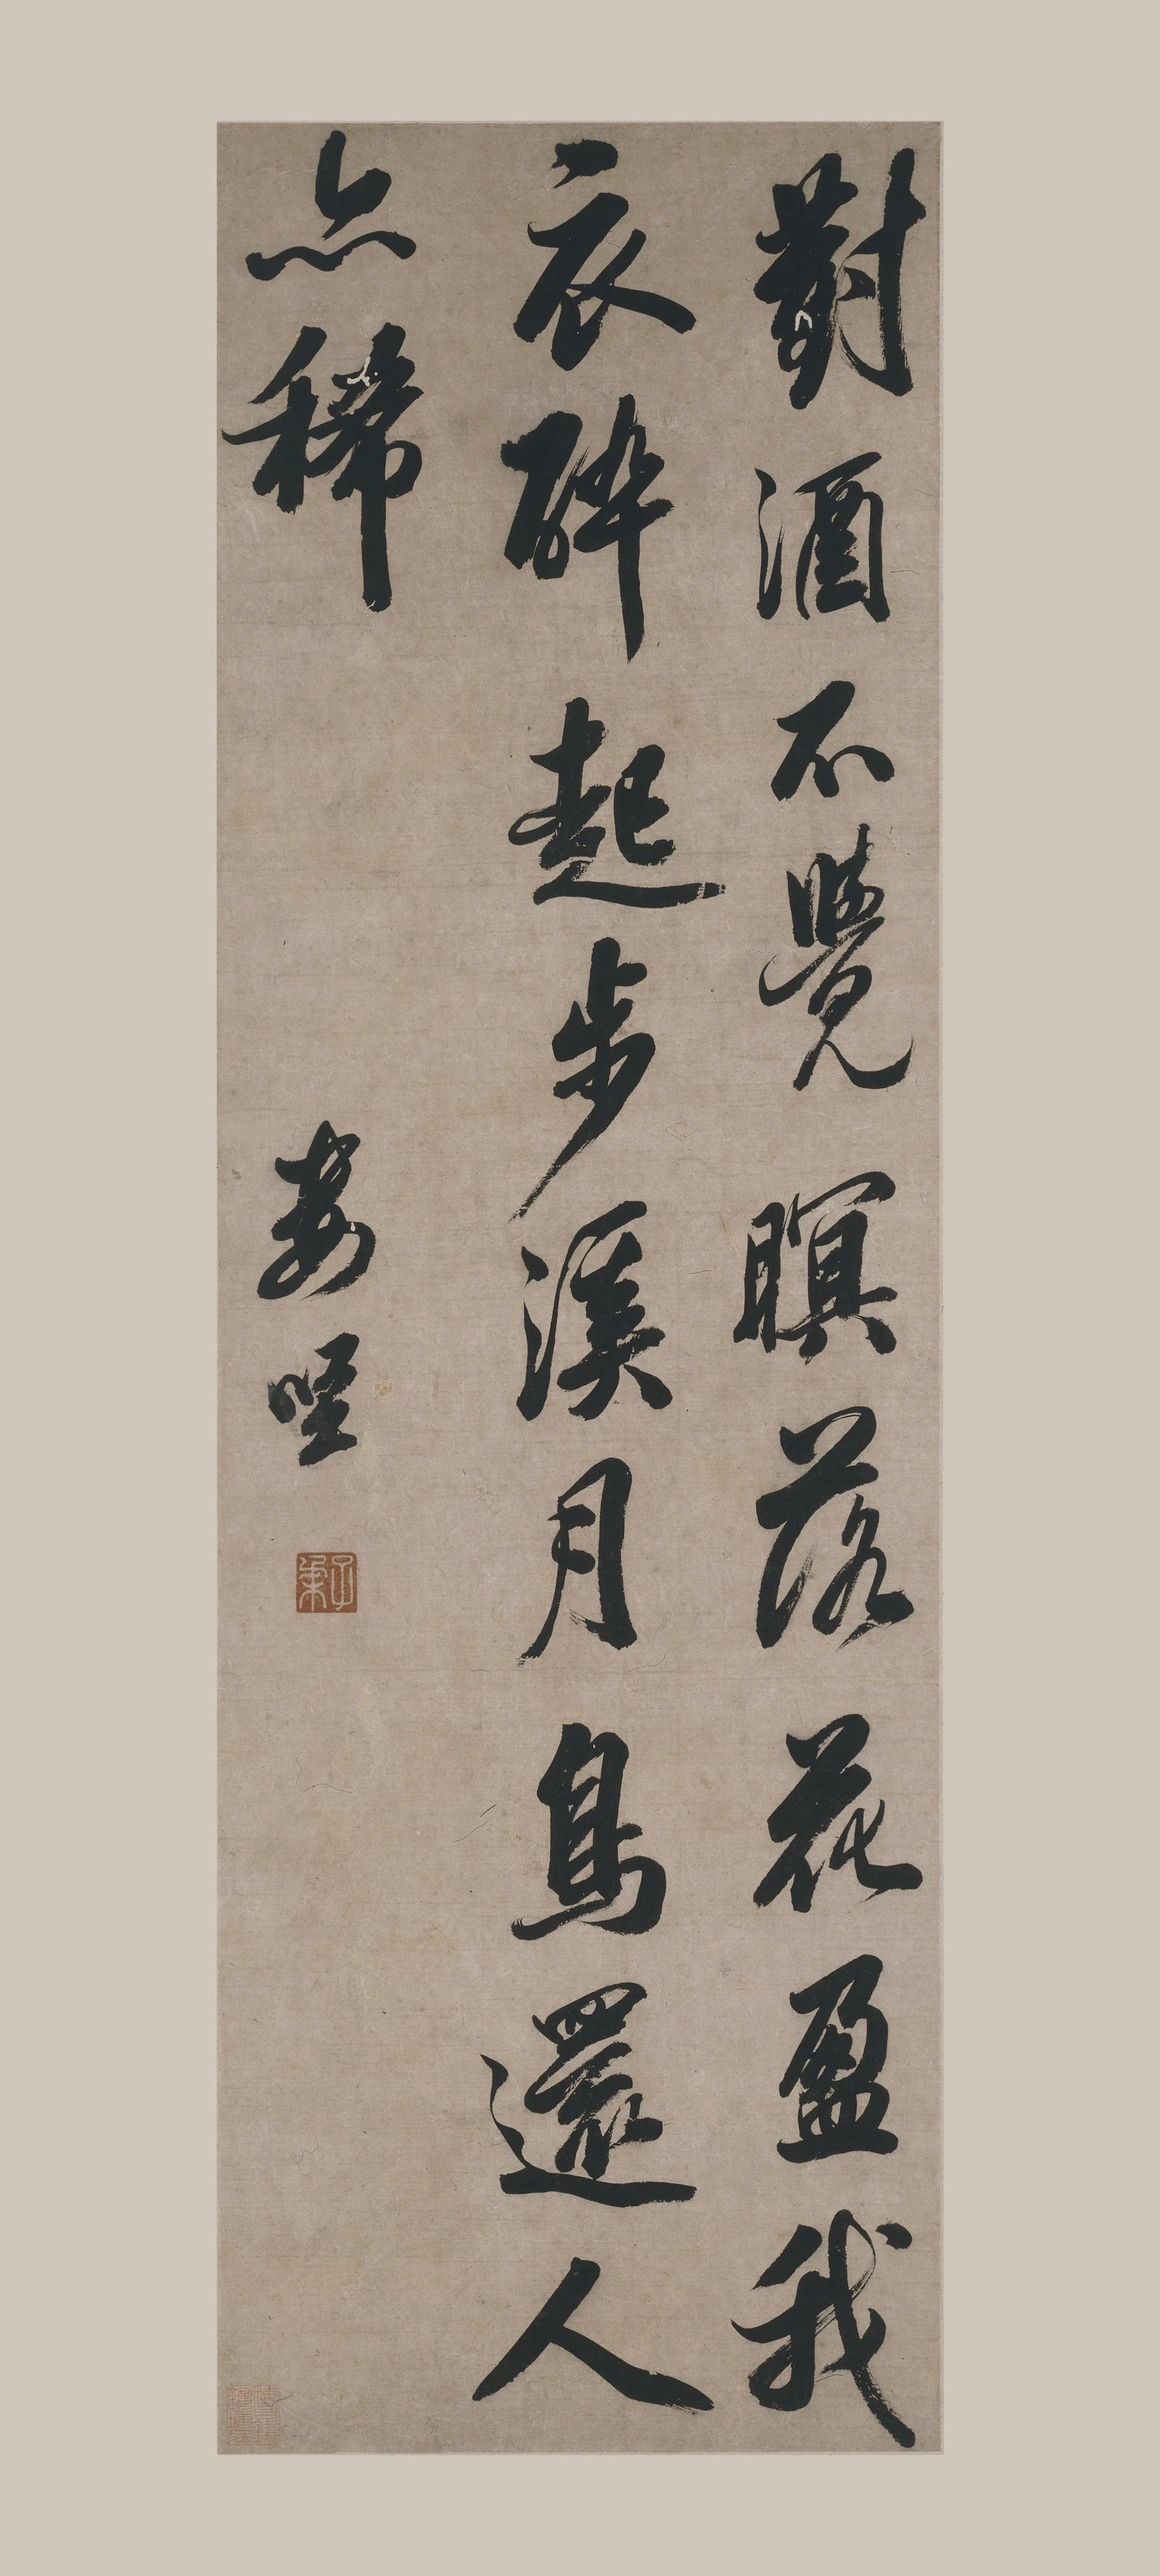 對酒不覺暝落花盈我
衣醉起步溪月鳥還人
亦稀
婁堅
子柔